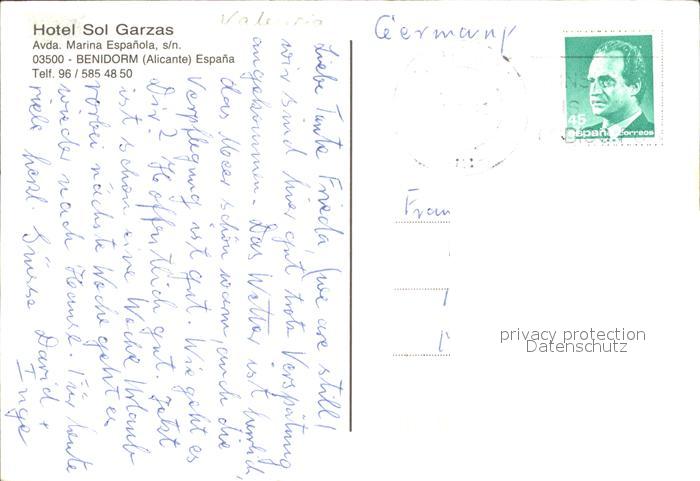 Hotel Sol Garzas
Avda. Marina Española, s/n.
03500 - BENIDORM (Alicante) España
Telf. 96 / 585 48 50
Valencia
Germany
45
españa correos
Liebe Tante Frieda, (we are still!
wir sind hier gut trotz Verspätung
angekommen. Das Wetter ist herrlich,
das Meer schön warm, auch die
Verpflegung ist gut. Wie geht es
Dir? Hoffentlich gut. Jetzt
ist schon eine Woche Urlaub
vorbei nächste Woche geht es
wieder nach Hause. Für heute
viele herzl. Grüsse David +
Inge
Frau
privacy protection
Datenschutz